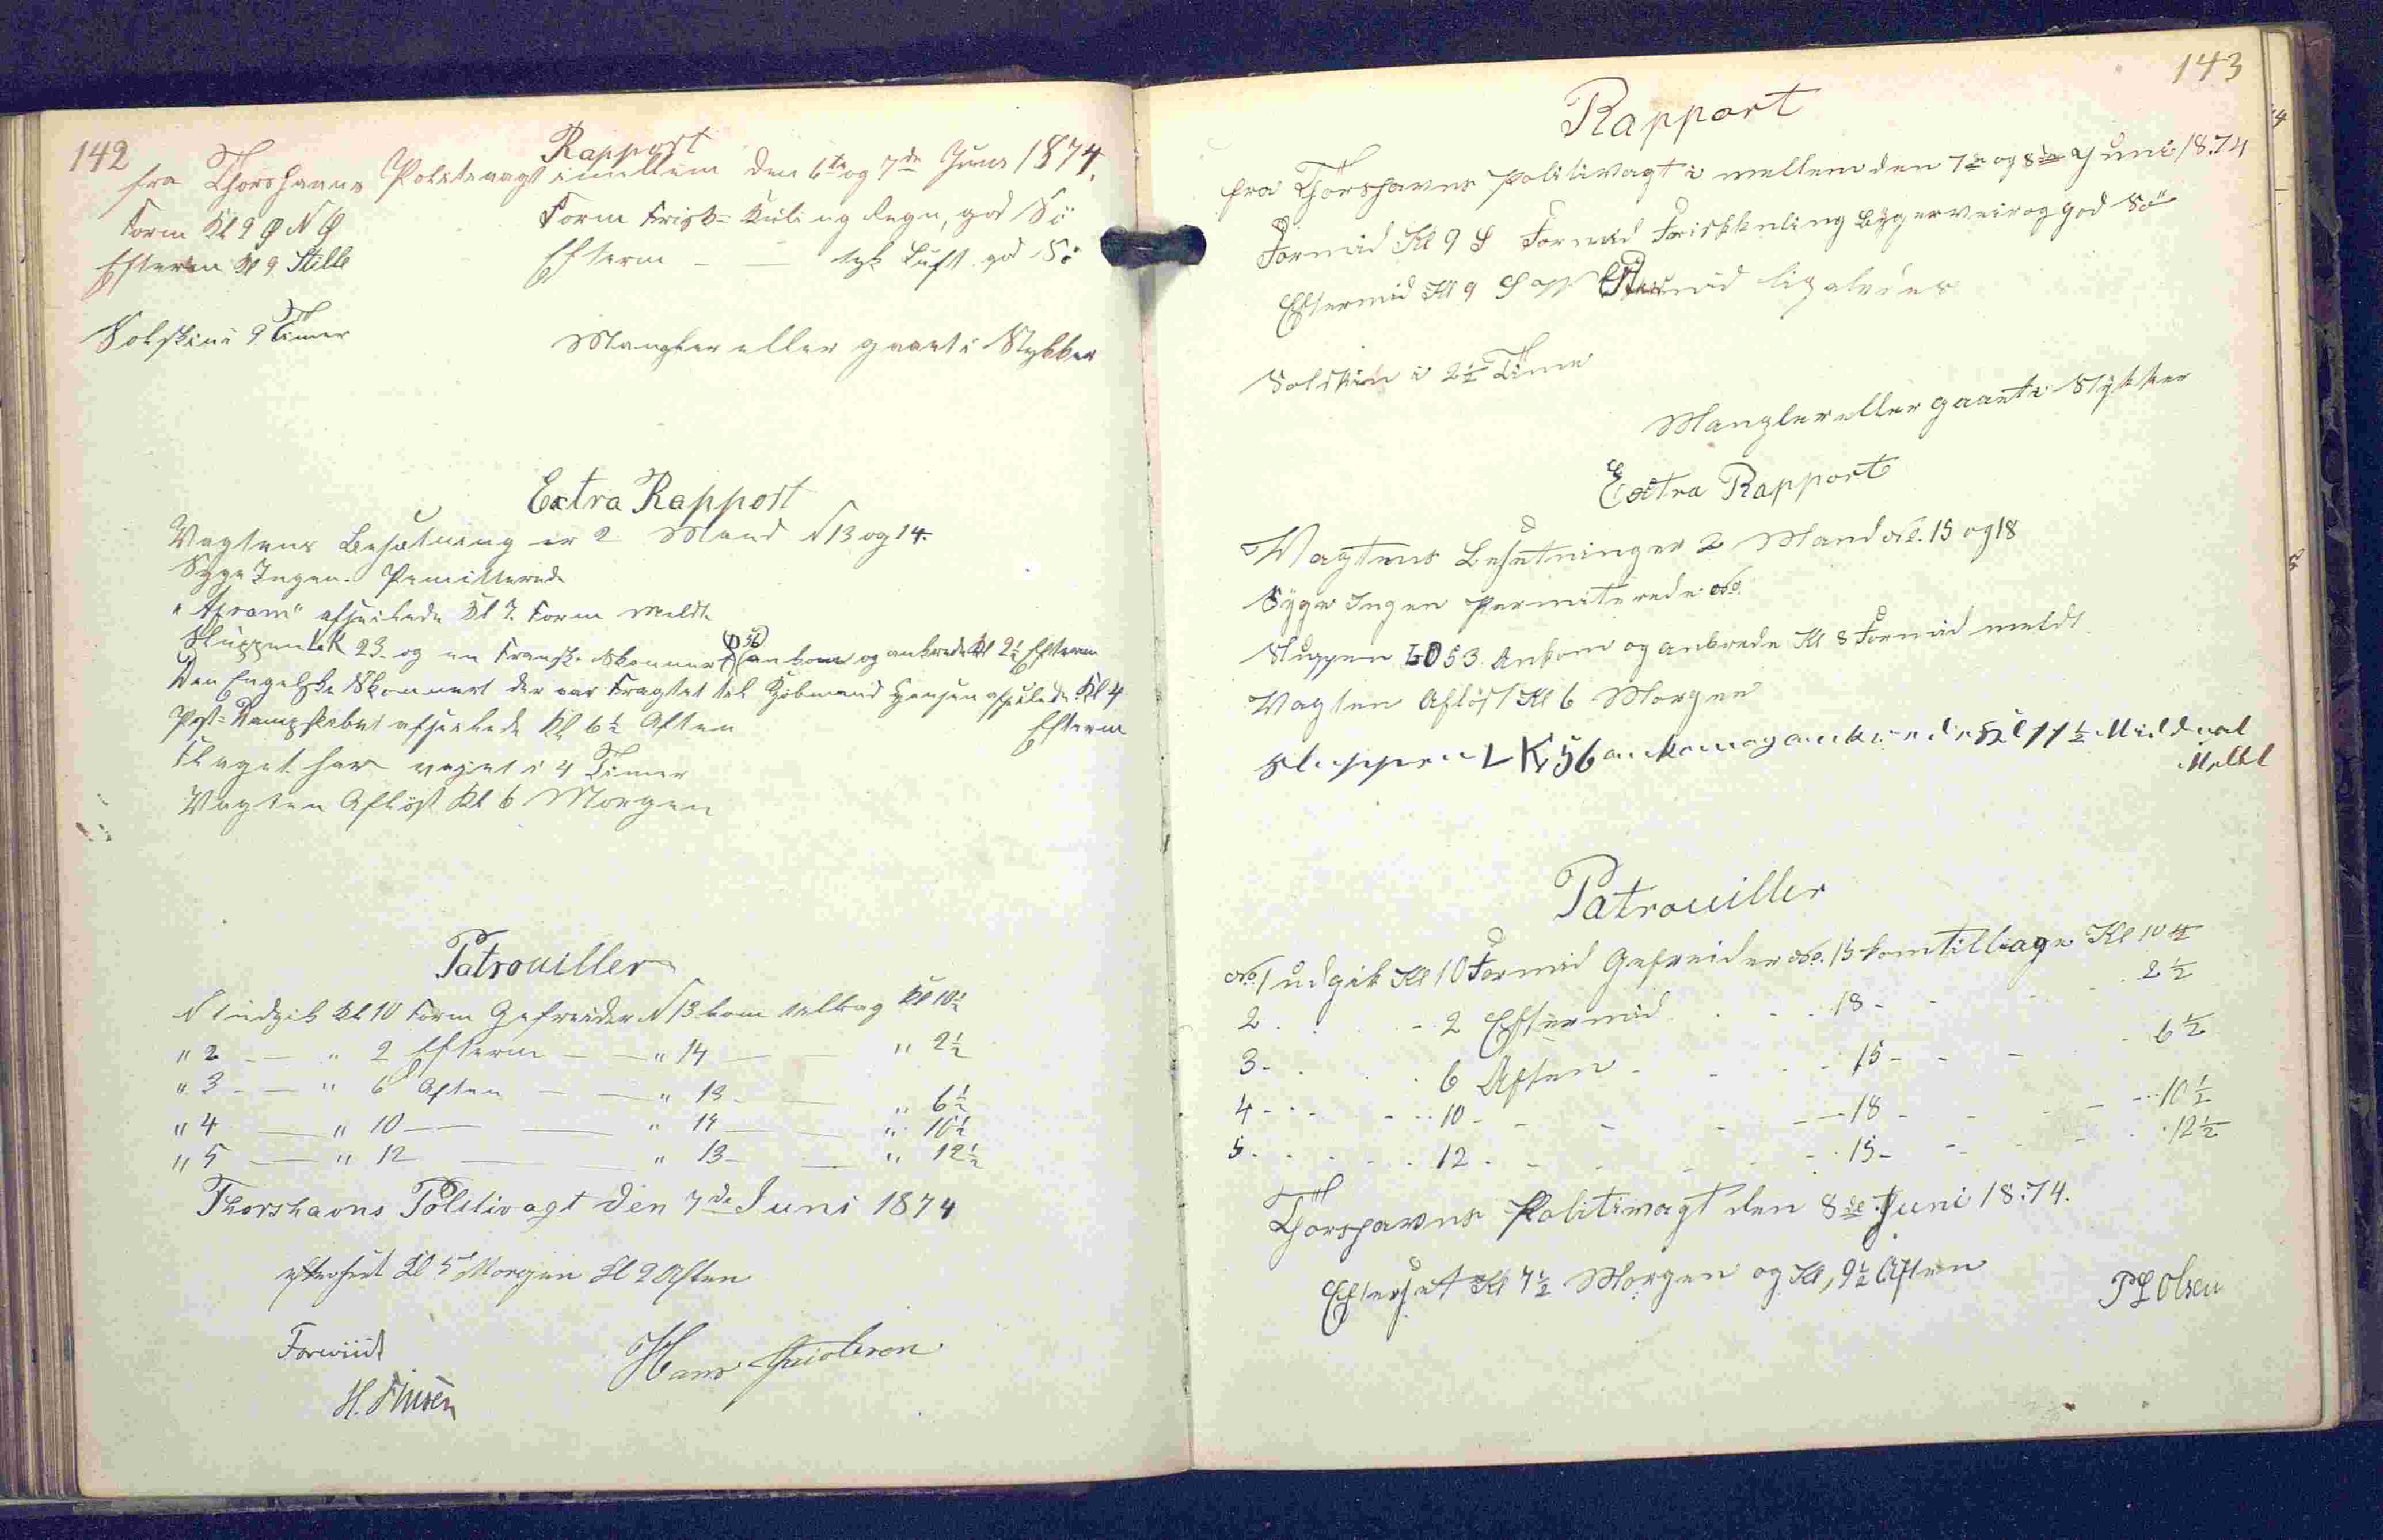 142
Rapport
fra Thorshavns Politivagt imellem den 6te og 7de Juni 1874.
Form Kl 9 Ø N Ø Form Frisk= Kuling Regn, god Sö
Efterm Kl 9 Stille Efterm — — tyk Luft god Sö
Solskin i 9 Timer Mangler eller gaaet i Stykker
Extra Rapport
Vagtens Besætning er 2 Mand N 13 og 14.
Syge Ingen. Pemitterede
afseilede Kl 7. Form meldt
Sluppen LK 23 og en Fransk Skonnert (D 56) ankom og ankrede Kl 2½ Efterm
Den Engelske Skonnert der var Fragtet til Kjöbmand Hansen afseilede Kl 4
Efterm
Post=Dampskibet afseilede Kl 6½ Aften
Flaget har vejet i 4 Timer
Vagten Aflöst Kl 6 Morgen
Patrouiller
N 1 udgik Kl 10 Form Gefreider N 13 kom tilbag Kl 10½
" 2 — — " 2 Efterm — — " 14 — — " 2½
" 3 — — " 6 Aften — — " 13 — — " 6½
" 4 — — " 10 — — " 14 — — " 10½
" 5 — — " 12 — — " 13 — — " 12½
Thorshavns Politivagt den 7de Juni 1874
efterseet Kl 5 Morgen Kl 9 Aften
Foreviist
H. Finsen
Hans
143
Rapport
fra Thorshavns Politivagt i mellem den 7de og 8de Juni 18.74
Formid Kl 9 S Formid Friskkuling Bygerveir og god Sö
Eftermid Kl 9 Eftermid ligeledes
Solskin i 2½ Time
Mangler eller gaaet i Stykker
Extra Rapport
Vagtens Besetning er 2 Mand No. 15 og 18
Syge Ingen Permiterede No.
Sluppen LD 53. Ankom og ankrede Kl 8 Formid meldt
Vagten Aflöst Kl 6 Morgen
Sluppen LK 56 ankom og ankrede Kl 11½ Middag
Meldt
Patrouiller
No. 1 udgik Kl 10 Formid Gefreider No. 15 kom tilbage Kl 10½
2 . . - 2 Eftermid . . . 18 - - . 2½
3 - . . 6 Aften - - - 15 - - - 6½
4 - - - 10 - - - 18 - - - 10½
5 . . . 12 . - - 15 - - - 12½
Thorshavns Politivagt den 8de Juni 18.74.
Efterset Kl 7½ Morgen og Kl, 9½ Aften
P L Olsen